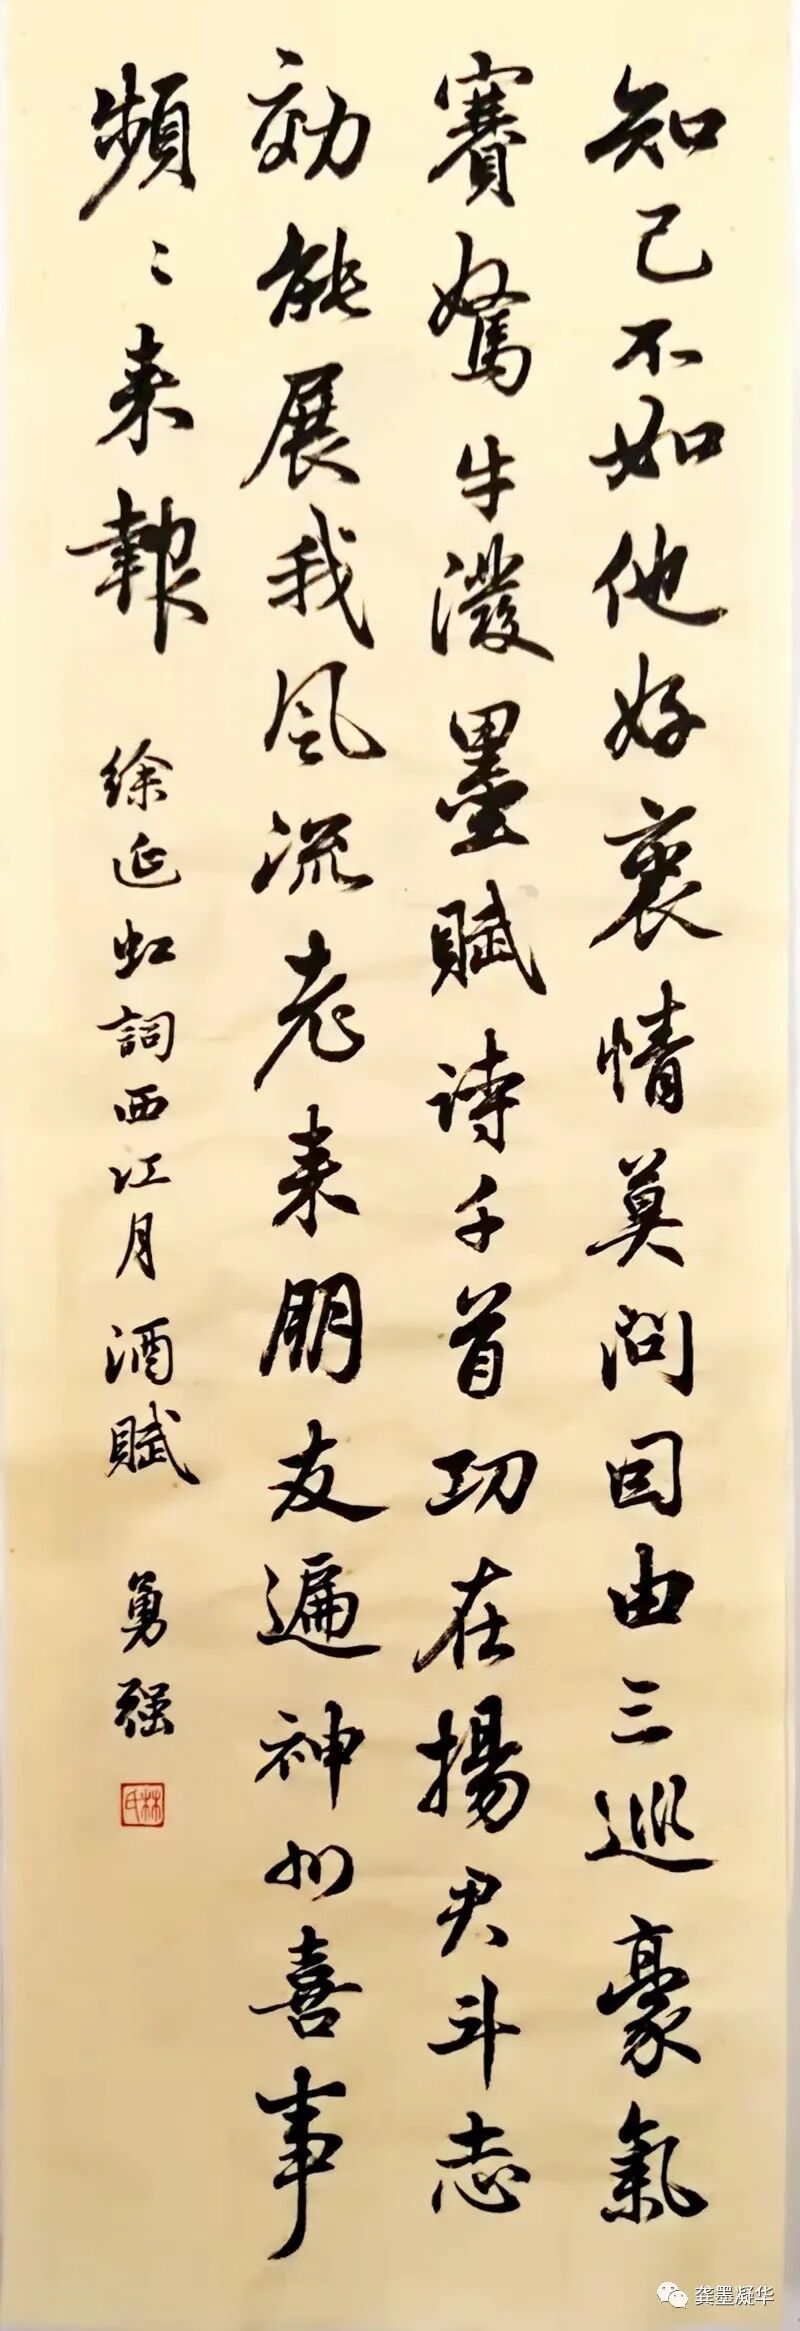 知己不如他好衷情莫问因由三巡豪氣
賽駑牛潑墨賦诗千首功在揚君斗志
効能展我风流老来朋友遍神州喜事
頻〻来報
徐延虹詞西江月酒賦
勇强
林氏
龚墨凝华